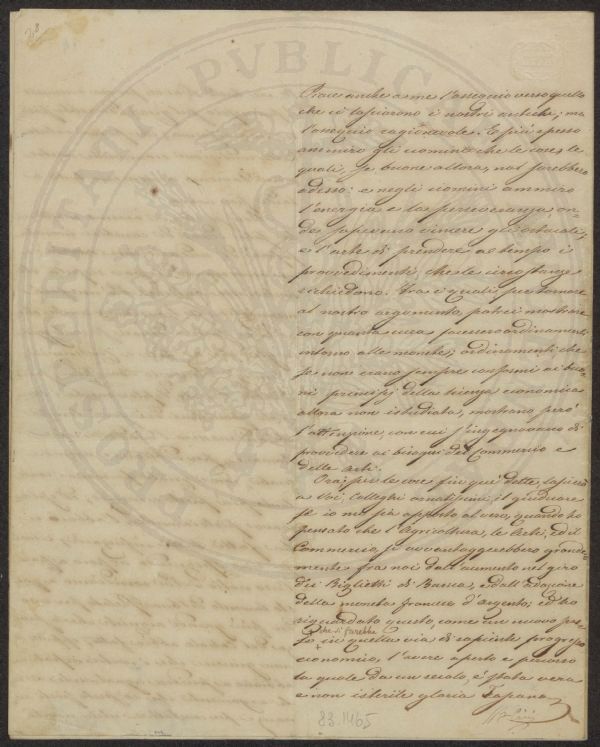 28
PROSPERITATI PVBLICAE
Piace anche a me l'ossequio verso quello
che ci lasciarono i nostri antichi; ma
l'ossequio ragionevole. E più spesso
ammiro gli uomini che le cose, le
quali, se buone allora, nol sarebbero
adesso; e negli uomini ammiro
l'energia e la perseveranza, on-
de sapevano vincere gli ostacoli,
e l'arte di prendere a tempo i
provvedimenti, che le circostanze
richiedono. Tra i quali, per tornare
al nostro argomento, potrei mostrare
con quanta cura facessero ordinamenti
intorno alle monete; ordinamenti che
se non erano sempre conformi ai buo-
ni principj della scienza economica
allora non istudiata, mostrano però
l'attenzione, con cui s'ingegnavano di
provvedere ai bisogni del Commercio e
delle arti.
Ora, per le cose fin quì dette, lascierò
a Voi, Colleghi ornatissimi, il giudicare
se io mi sia apposto al vero, quando ho
pensato che l'Agricoltura, le Arti, ed il
Commercio, si avvantaggerebbero grande-
mente fra noi dall'aumento nel giro
dei Biglietti di Banca, e dall'adozione
della moneta francese d'argento; ed ho
risguardato questo, come un nuovo pas-
so che si farebbe in quella via di sapiente progresso
economico, l'avere aperto e percorso
la quale da un secolo, è stata vera
e non isterile gloria Toscana
83.1465